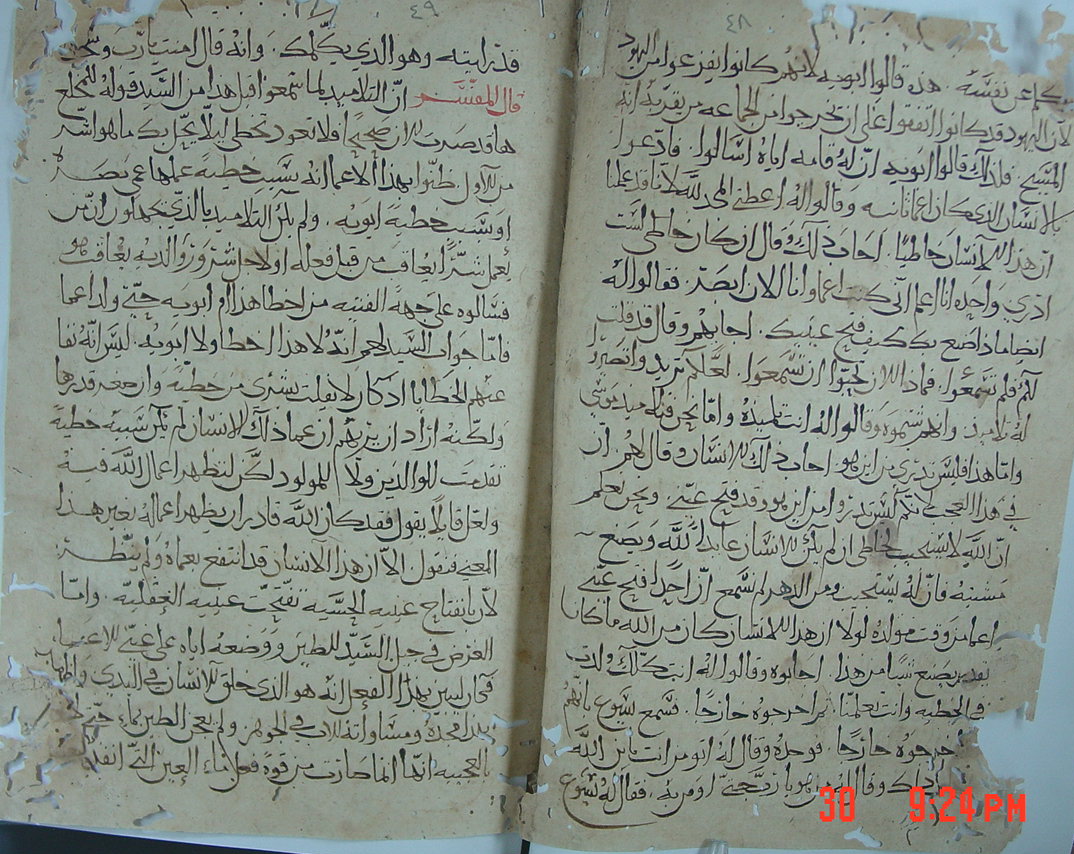 ٤٨
يتكلم عن نفسه. هذه قالوا ابويه لانهم كانوا يفزعوا من اليهود
لان اليهود قد كانوا اتفقوا على ان يخرجوا من الجماعه من يقر به انه
المسيح. فلذلك قالوا ابويه ان له قامه اياه اسالوا. فادعوا
بالانسان الذي كان اعما ثانيه وقالوا له اعطي المجد لله لانا قد علمنا
ان هذا الانسان خاطيا. اجاب ذلك وقال ان كان خاطي لست
ادري واحده انا اعلم اني كنت اعما وانا الان ابصر. فقالوا له
ايضا ماذا صنع بك كيف فتح عينيك. اجابهم وقال قد قلت
لكم فلم تسمعوا. فماذا الان تحبوا ان تسمعوا. لعلكم تريدوا تصيروا
له تلاميذ. وانهم شتموه وقالوا له انت تلميذه واما نحن فتلاميذ موسى
واما هذا فليس ندري من اين هو. اجاب ذلك الانسان وقال لهم. ان
في هذا العجب انكم ليس تدروا من اين هو وقد فتح عيني. ونحن نعلم
ان الله لا يستجيب لخاطي ان لم يكن الانسان عابدا لله ويصنع
مشيته فان له يستجيب ومن الدهر لم نسمع ان احدا فتح عيني
اعما من وقت مولده لولا ان هذا الانسان كان من الله ما كان
يقدر يصنع شيا من هذا. اجابوه وقالوا له انت كلك ولدت
في الخطيه وانت تعلمنا. ثم اخرجوه خارجا. فسمع يسوع بانهم
اخرجوه خارجا. فوجده وقال له اتومن انت بابن الله
اجاب ذاك وقال له من هو يا رب حتى اومن به. فقال له يسوع
٤٩
قد رايته وهو الذي يكلمك. وانه قال امنت يا رب وسجد
قال المفسر ان التلاميذ لما سمعوا قبل هذا من السيد قوله للمخلع
ها قد صرت الان صحيحا فلا تعود تخطي ليلا يحل بك ما هو اشر
من الاول. ظنوا بهذا الاعما انه بسبب خطيه عملها عمي بصره
او بسبب خطية ابويه. ولم يكن التلاميذ بالذي يجهلون ان من
يعمل شرا يعاقب من قبل فعله اولا حاشر وزر والديه يعاقب هو
فسالوه على جهة الفتنه من اخطا هذا ام ابويه حتى ولد اعما
فاما جواب السيد لهم انه لا هذا اخطا ولا ابويه. ليس انه نفا
عنهم الخطايا اذ كان لا يفلت بشري من خطيه وان صغر قدرها
ولكنه اراد ان يريهم ان عما ذلك الانسان لم يكن سببه خطية
تقدمت للوالدين ولا للمولود لكن لتظهر اعمال الله فيه
ولعل قايلا يقول فقد كان الله قادر ان يظهر اعماله بغير هذا
العمى فنقول. الا ان هذا الانسان قد انتفع بعماه ولم يظلمه
لان بانفتاح عينيه الحسيه تفتحت عينيه العقليه. واما
الغرض في جبل السيد للطين ووضعه اياه على عيني الاعما.
فكان ليبين بهذا الفعل انه هو الذي خلق الانسان في البدي واظهار
بهذا مجده ومساواته للاب في الجوهر ولم يعجن الطين بماء حتى
بالعجيبه انها انما صارت من قوة فعل ماء العين التي انفذ
30 9:24 PM